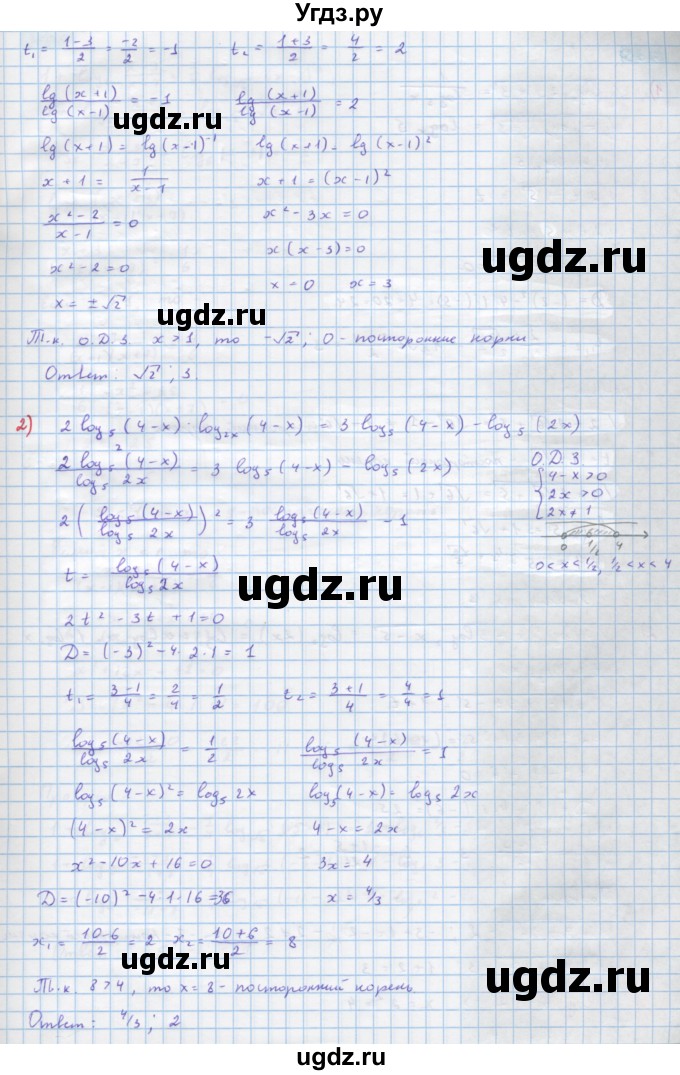 Угдз.ру
t₁ = (1-3)/2 = -2/2 = -1     t₂ = (1+3)/2 = 4/2 = 2
lg(x+1)/lg(x-1) = -1     lg(x+1)/lg(x-1) = 2
ugdz.ru
lg(x+1) = lg(x-1)⁻¹     lg(x+1) = lg(x-1)²
x+1 = 1/(x-1)     x+1 = (x-1)²
(x²-2)/(x-1) = 0     x²-3x = 0
x(x-3) = 0
ugdz.ru
x²-2 = 0     x = 0     x = 3
x = ±√2
Т.к. О.Д.З. x>1, то -√2; 0 - посторонние корни
ugdz.ru
Ответ: √2; 3.
2) 2 log₅(4-x)·log₂ₓ(4-x) = 3 log₅(4-x) - log₅(2x)
2 log₅²(4-x)/log₅ 2x = 3 log₅(4-x) - log₅(2x)     О.Д.З.
{4-x>0
2x>0
2x≠1
2(log₅(4-x)/log₅ 2x)² = 3 log₅(4-x)/log₅ 2x - 1
0 1/2 4
t = log₅(4-x)/log₅ 2x     0<x<1/2, 1/2<x<4
ugdz.ru
2t² - 3t + 1 = 0
D = (-3)² - 4·2·1 = 1
t₁ = (3-1)/4 = 2/4 = 1/2     t₂ = (3+1)/4 = 4/4 = 1
log₅(4-x)/log₅ 2x = 1/2     log₅(4-x)/log₅ 2x = 1
ugdz.ru
log₅(4-x)² = log₅ 2x     log₅(4-x) = log₅ 2x
(4-x)² = 2x     4-x = 2x
x² - 10x + 16 = 0     3x = 4
D = (-10)² - 4·1·16 = 36     x = 4/3
x₁ = (10-6)/2 = 2     x₂ = (10+6)/2 = 8
ugdz.ru     ugdz.ru
Т.к. 8>4, то x = 8 - посторонний корень
Ответ: 4/3; 2
ugdz.ru